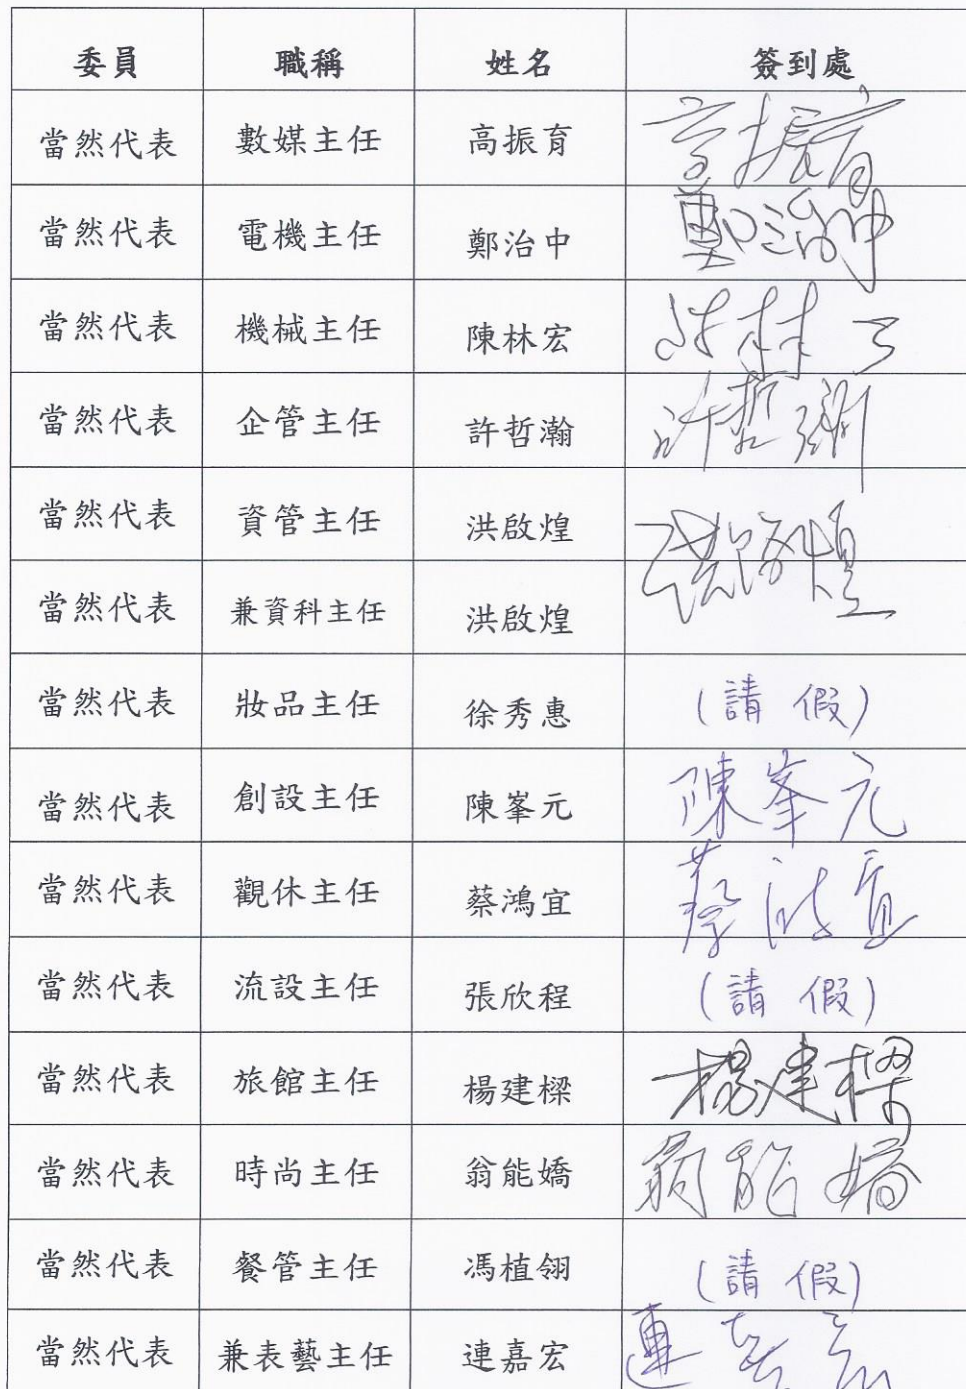 委員 職稱 姓名 簽到處
當然代表 數媒主任 高振育 高振育
當然代表 電機主任 鄭治中 鄭治中
當然代表 機械主任 陳林宏
當然代表 企管主任 許哲瀚 許哲瀚
當然代表 資管主任 洪啟煌 洪啟煌
當然代表 兼資科主任 洪啟煌
當然代表 妝品主任 徐秀惠 (請 假)
當然代表 創設主任 陳峯元 陳峯元
當然代表 觀休主任 蔡鴻宜 蔡鴻宜
當然代表 流設主任 張欣程 (請 假)
當然代表 旅館主任 楊建樑 楊建樑
當然代表 時尚主任 翁能嬌 翁能嬌
當然代表 餐管主任 馮植翎 (請 假)
當然代表 兼表藝主任 連嘉宏